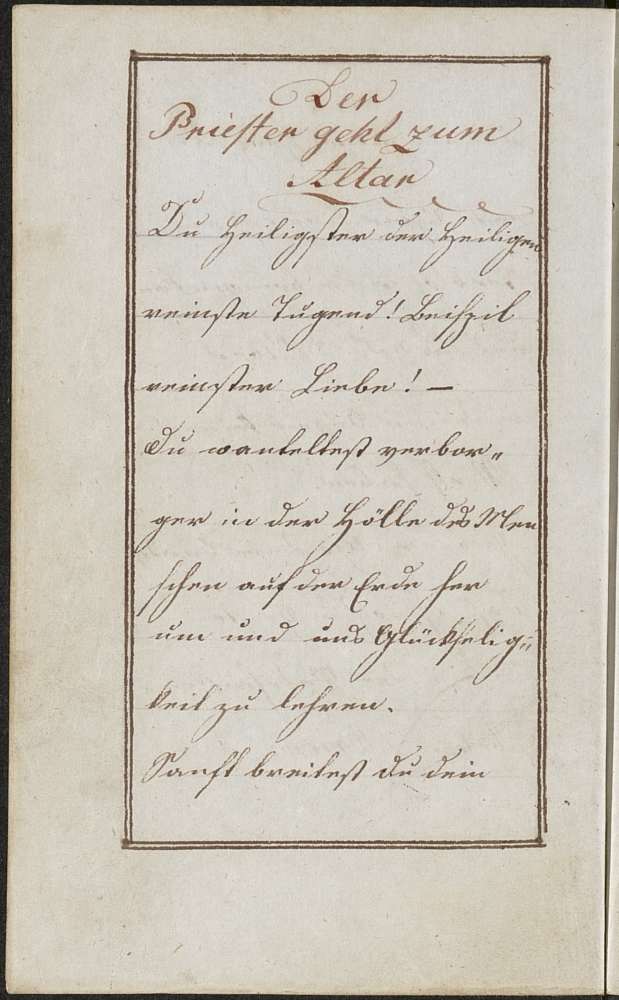 Der
Priester geht zum
Altar
Du Heiligster der Heiligen
reinste Tugend! Beispil
reinster Liebe! –
Du wanteltest verbor„
ger in der Hölle des Men
schen auf der Erde her
um und uns Glückselig„
keit zu lehren.
Sanft breitest du dein